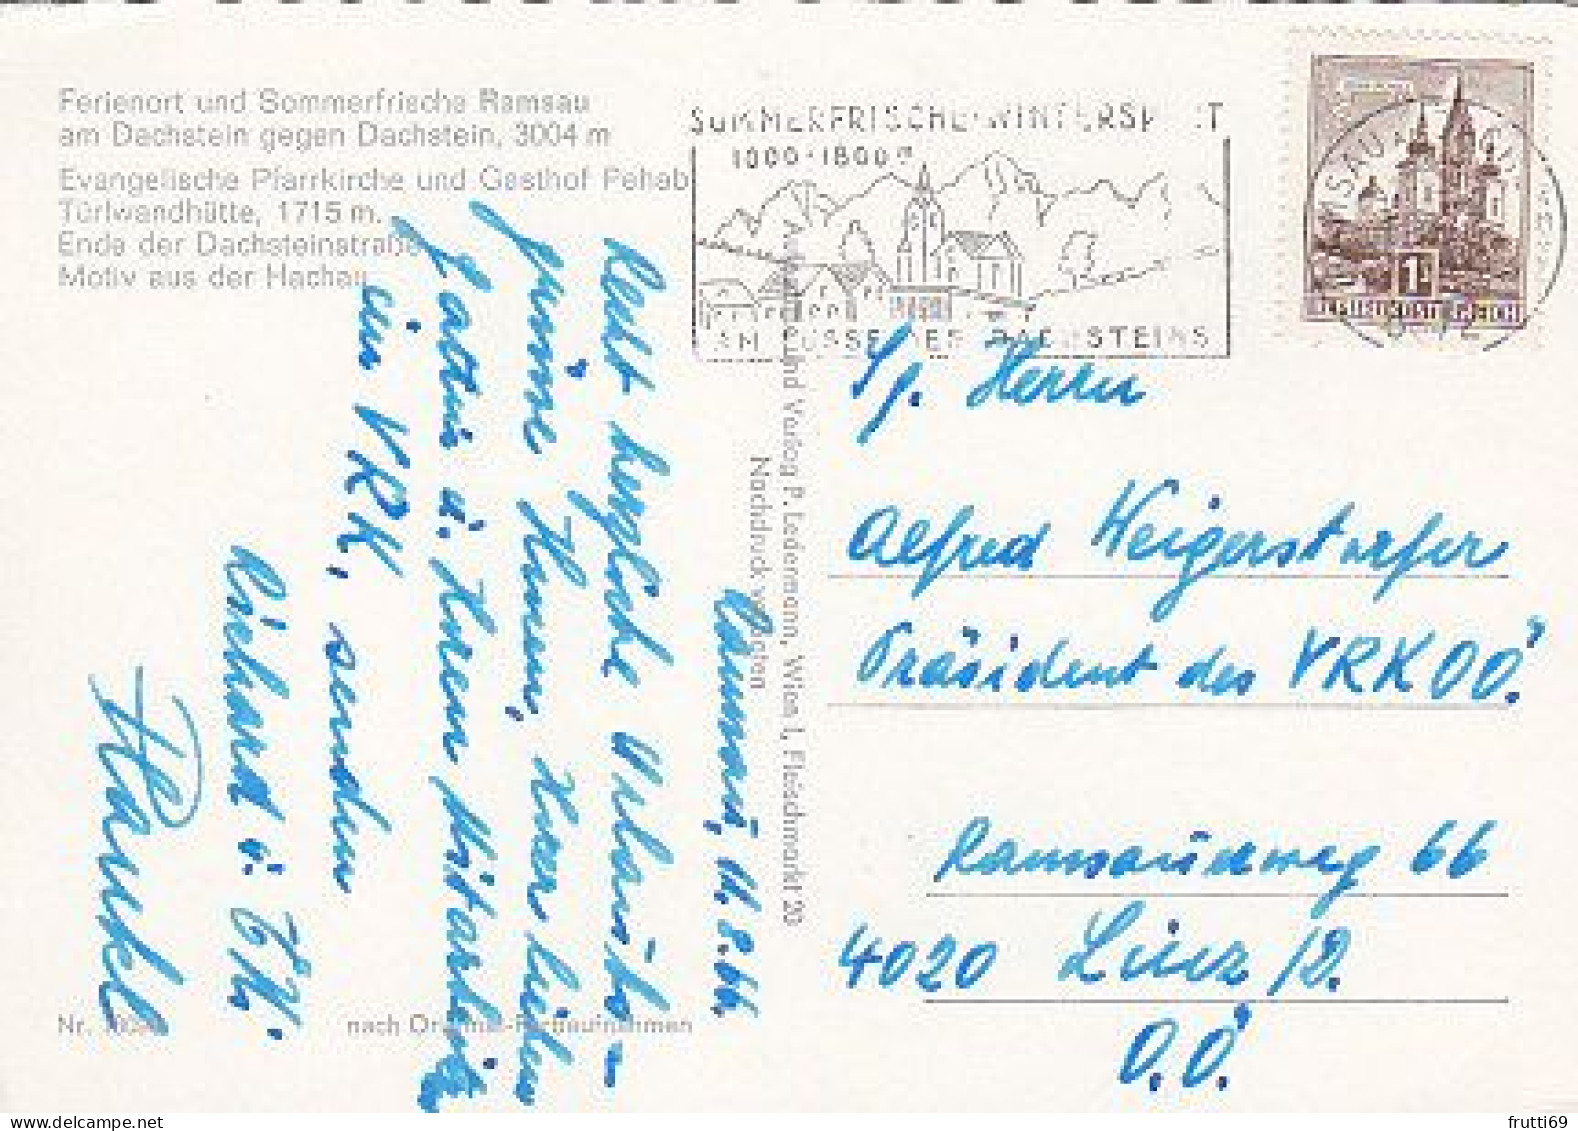 Ferienort und Sommerfrische Ramsau
am Dachstein gegen Dachstein, 3004 m
Evangelische Pfarrkirche und Gasthof Pehab
Türlwandhütte, 1715 m.
Ende der Dachsteinstraße
Motiv aus der Hachau
SOMMERFRISCHE-WINTERSPORT
1000-1800m
AM FUSSE DES DACHSTEINS
1
REPUBLIK ÖSTERREICH
11.8.66.
Recht herzliche Urlaubs-
grüsse Ihnen, Ihrer lieben
Gattin u. Ihren Mitarbeitern
im VRK, senden
Richard u.
Verlag P. Ledermann, Wien I, Fleischmarkt 20
Nachdruck verboten
Herrn
Alfred Weigerstorfer
Präsident des VRK OÖ.
Ramsauerweg 66
4020 Linz /2.
O.Ö.
Nr.
nach Original-Farbaufnahmen
frutti69